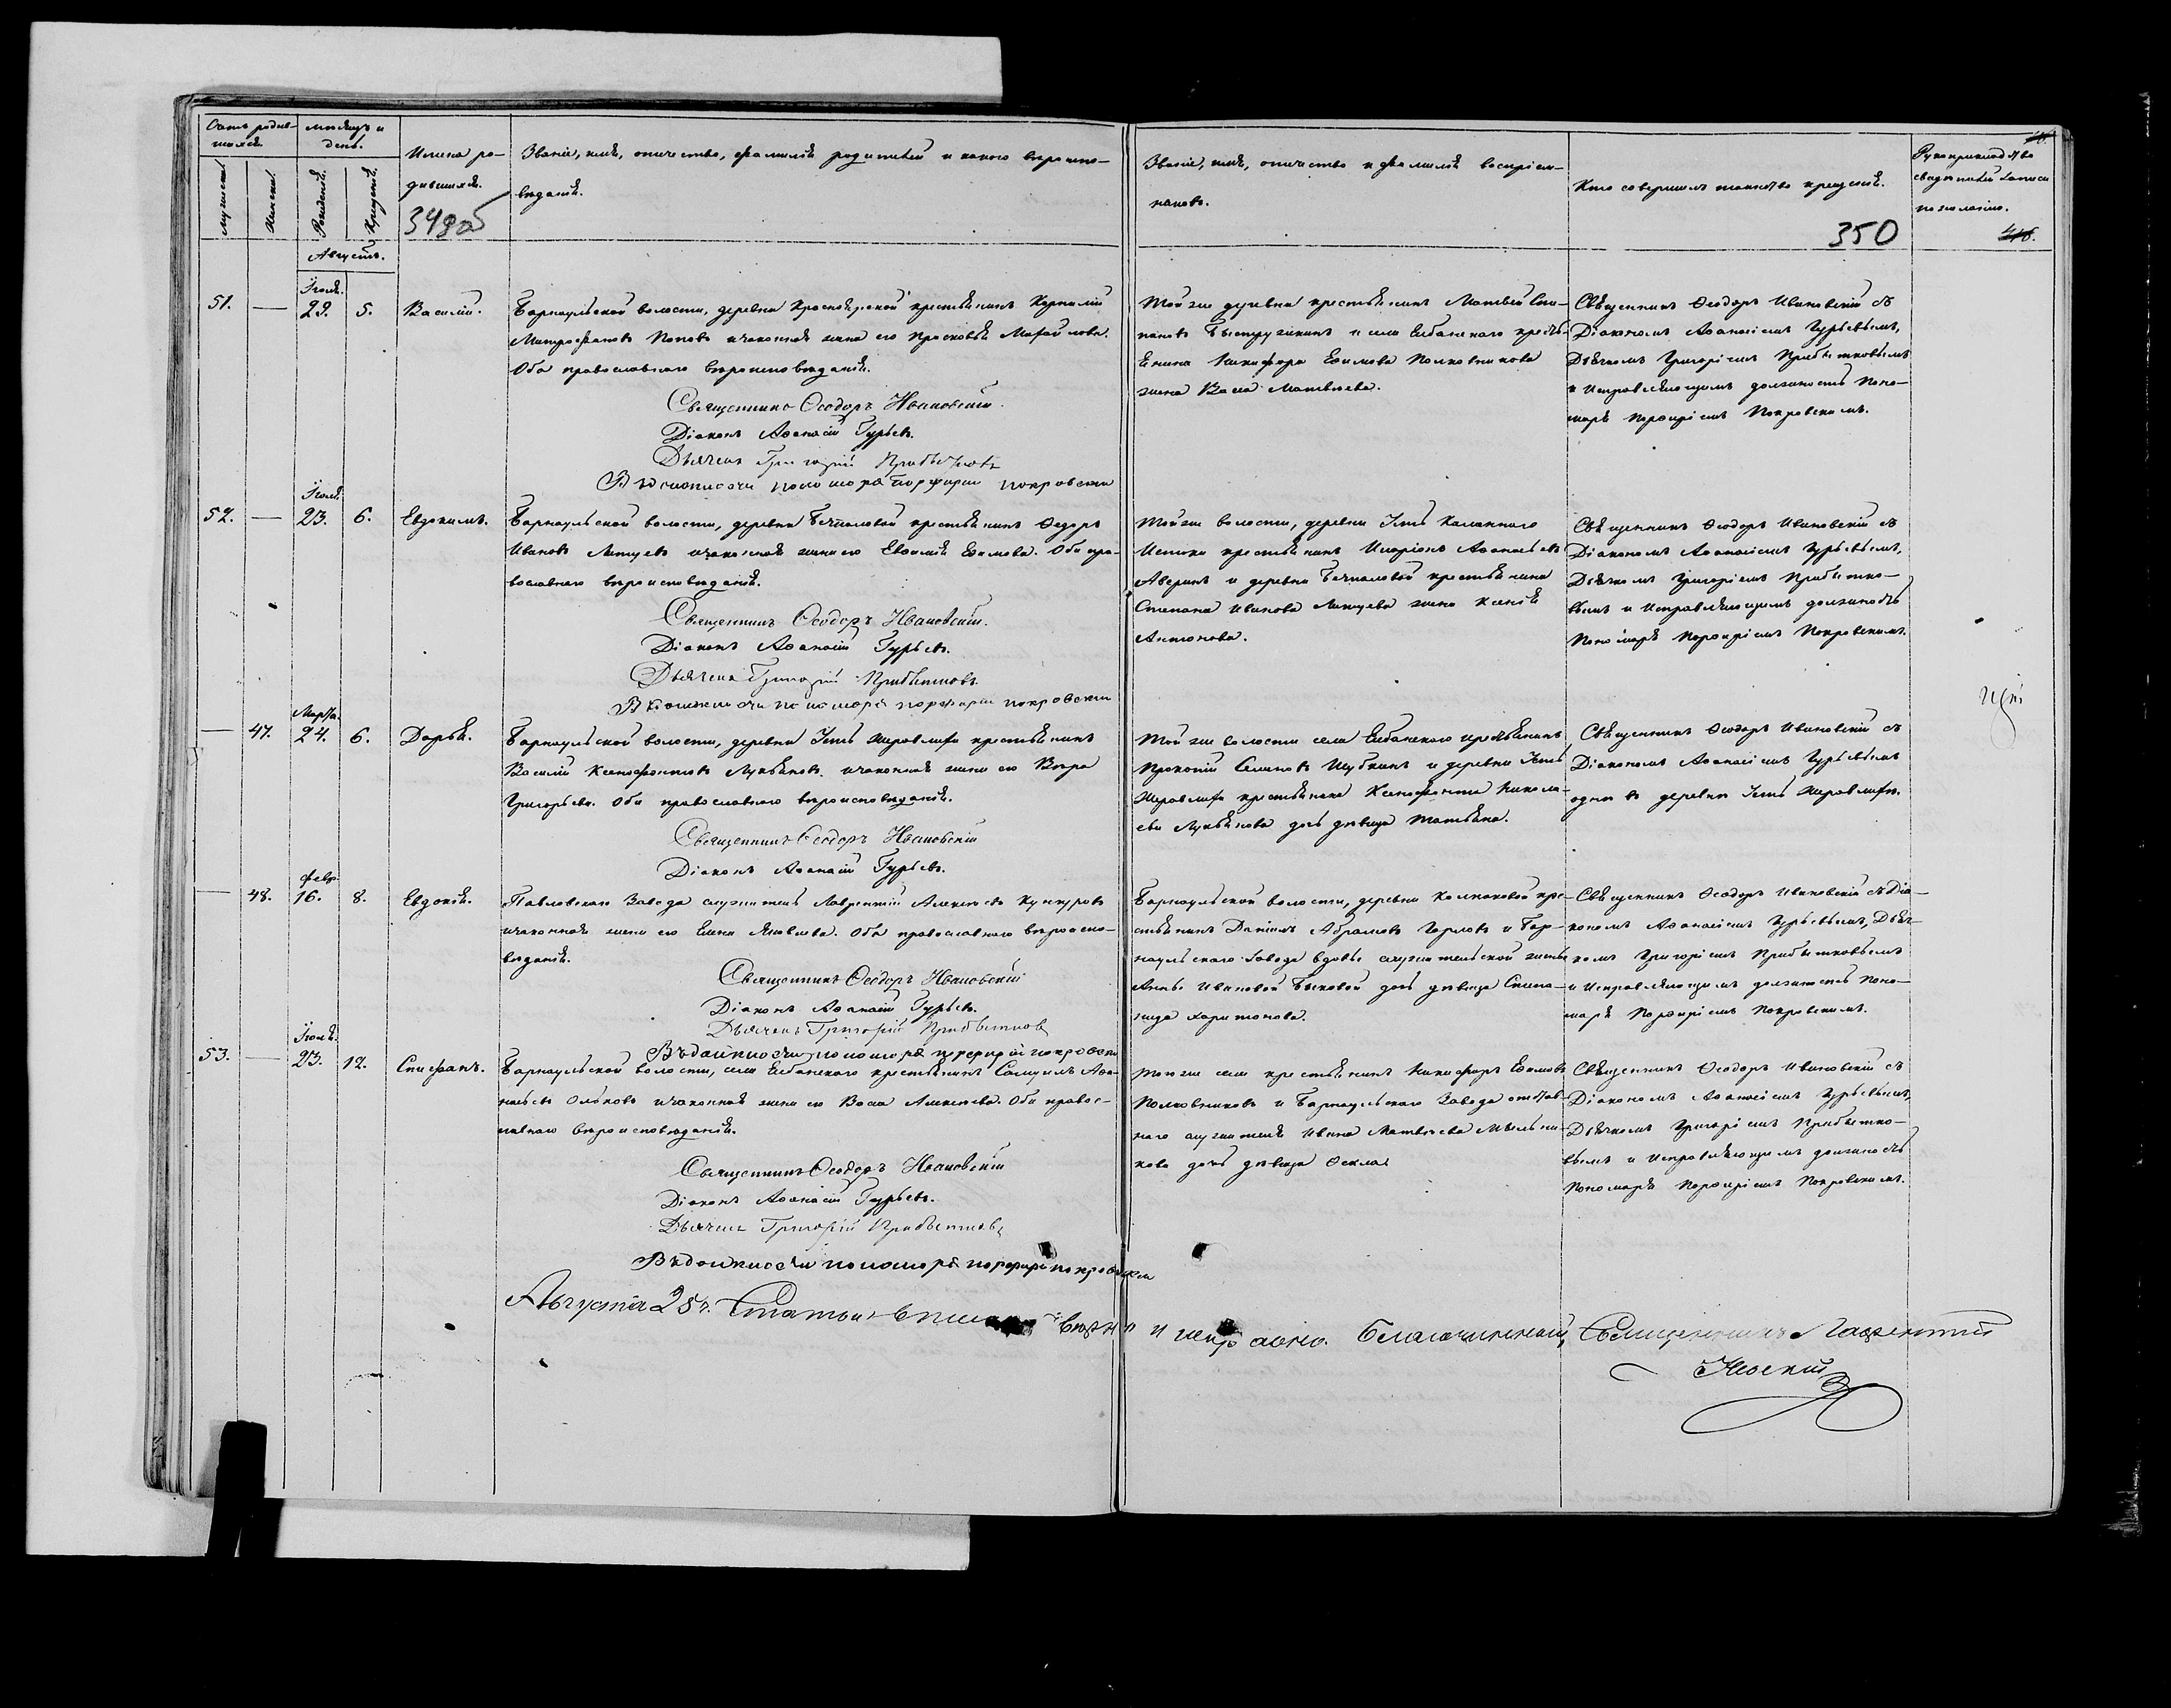 Счетъ родив-
шихся.
мѣсяцъ и
день.
Мужеска.
Женска.
Рожденія.
Крещенія.
Имена ро-
дившихся.
349об
Званіе, имя, отчество, фамилія родителей и какого вѣроиспо-
вѣданія.
Званіе, имя, отчество и фамилія воспріем-
никовъ.
Кто совершалъ таинство крещенія.
350
Рукоприкладство
свидѣтелей записи
по желанію.
Августъ.
51. — Іюля. 29. 5. Василій.
Барнаульской волости, деревни Красноярской крестьянинъ Корнилій
Митрофановъ Поповъ и законная жена его Прасковья Михайлова.
Оба православнаго вѣроисповѣданія.
Священникъ Ѳеодоръ Ивановскій.
Діаконъ Аѳанасій Гурьевъ.
Дьячекъ Григорій Прибытковъ
В должности пономаря Порфирій Покровскій
Той же деревни крестьянинъ Матвѣй Сте-
пановъ Быструшкинъ и села Елбанскаго кресть-
янина Никифора Ефимова Полковникова
жена Васса Матвѣева.
Священникъ Ѳеодоръ Ивановскій съ
Діакономъ Аѳанасіемъ Гурьевымъ,
Дьячкомъ Григоріемъ Прибытковымъ
и Исправляющимъ должность Поно-
маря Порфиріемъ Покровскимъ.
52. — Іюля. 23. 6. Евдокимъ.
Барнаульской волости, деревни Безпаловой крестьянинъ Ѳедоръ
Ивановъ Лапуевъ и законная жена его Евфимія Ефимова. Оба пра-
вославнаго вѣроисповѣданія.
Священникъ Ѳеодоръ Ивановскій.
Діаконъ Аѳанасій Гурьевъ.
Дьячекъ Григорій Прибытковъ.
В должности пономаря Порфирій Покровскій
Той же волости, деревни Усть Каланнаго
Истока крестьянинъ Иларіонъ Аѳанасьевъ
Аверинъ и деревни Безпаловой крестьянина
Степана Иванова Лапуева жена Ксенія
Антонова.
Священникъ Ѳеодоръ Ивановскій съ
Діакономъ Аѳанасіемъ Гурьевымъ,
Дьячкомъ Григоріемъ Прибытко-
вымъ и Исправляющимъ должность
Пономаря Порфиріемъ Покровскимъ.
— 47. Марта. 24. 6. Дарья.
Барнаульской волости, деревни Усть Журавлихи крестьянинъ
Василій Ксенофонтовъ Лукьяновъ и законная жена его Вѣра
Григорьева. Оба православнаго вѣроисповѣданія.
Священникъ Ѳеодоръ Ивановскій
Діаконъ Аѳанасій Гурьевъ.
Той же волости села Елбанскаго крестьянинъ
Прокопій Семеновъ Шубкинъ и деревни Усть
Журавлихи крестьянина Ксенофонта Никола-
ева Лукьянова дочь дѣвица Татьяна.
Священникъ Ѳеодоръ Ивановскій съ
Діакономъ Аѳанасіемъ Гурьевымъ
одни въ деревнѣ Усть Журавлихѣ.
— 48. Февр. 16. 8. Евдокія.
Павловскаго Завода служитель Лаврентій Алексѣевъ Кункуровъ
и законная жена его Елена Яковлева. Оба православнаго вѣроиспо-
вѣданія.
Священникъ Ѳеодоръ Ивановскій
Діаконъ Аѳанасій Гурьевъ.
Дьячекъ Григорій Прибытковъ
Въ должности пономаря Порфирій Покровскій
Барнаульской волости, деревни Колпаковой кре-
стьянинъ Даніилъ Абрамовъ Горловъ и Бар-
наульскаго завода вдовы служительской жены
Анны Ивановой Быковой дочь дѣвица Степа-
нида Харитонова.
Священникъ Ѳеодоръ Ивановскій съ Діа-
кономъ Аѳанасіемъ Гурьевымъ, Дьяч-
комъ Григоріемъ Прибытковымъ
и Исправляющимъ должность Поно-
маря Порфиріемъ Покровскимъ.
53. — Іюля. 23. 12. Стефанъ.
Барнаульской волости, села Елбанскаго крестьянинъ Самуилъ Аѳа-
насьевъ Ольковъ и законная жена его Васса Алексѣева. Оба правос-
лавнаго вѣроисповѣданія.
Священникъ Ѳеодоръ Ивановскій
Діаконъ Аѳанасій Гурьевъ.
Дьячекъ Григорій Прибытковъ
Въ должности пономаря Порфирій Покровскій
Того же села крестьянинъ Никифоръ Ефимовъ
Полковниковъ и Барнаульскаго Завода отстав-
наго служителя Ивана Матвѣева Мыльни-
кова дочь дѣвица Ѳекла.
Священникъ Ѳеодоръ Ивановскій съ
Діакономъ Аѳанасіемъ Гурьевымъ,
Дьячкомъ Григоріемъ Прибытко-
вымъ и Исправляющимъ должность
Пономаря Порфиріемъ Покровскимъ.
Августа 25 ч. Статьи вписаны вѣрно и исправно. Благочинный, Священникъ Лаврентій
Невскій